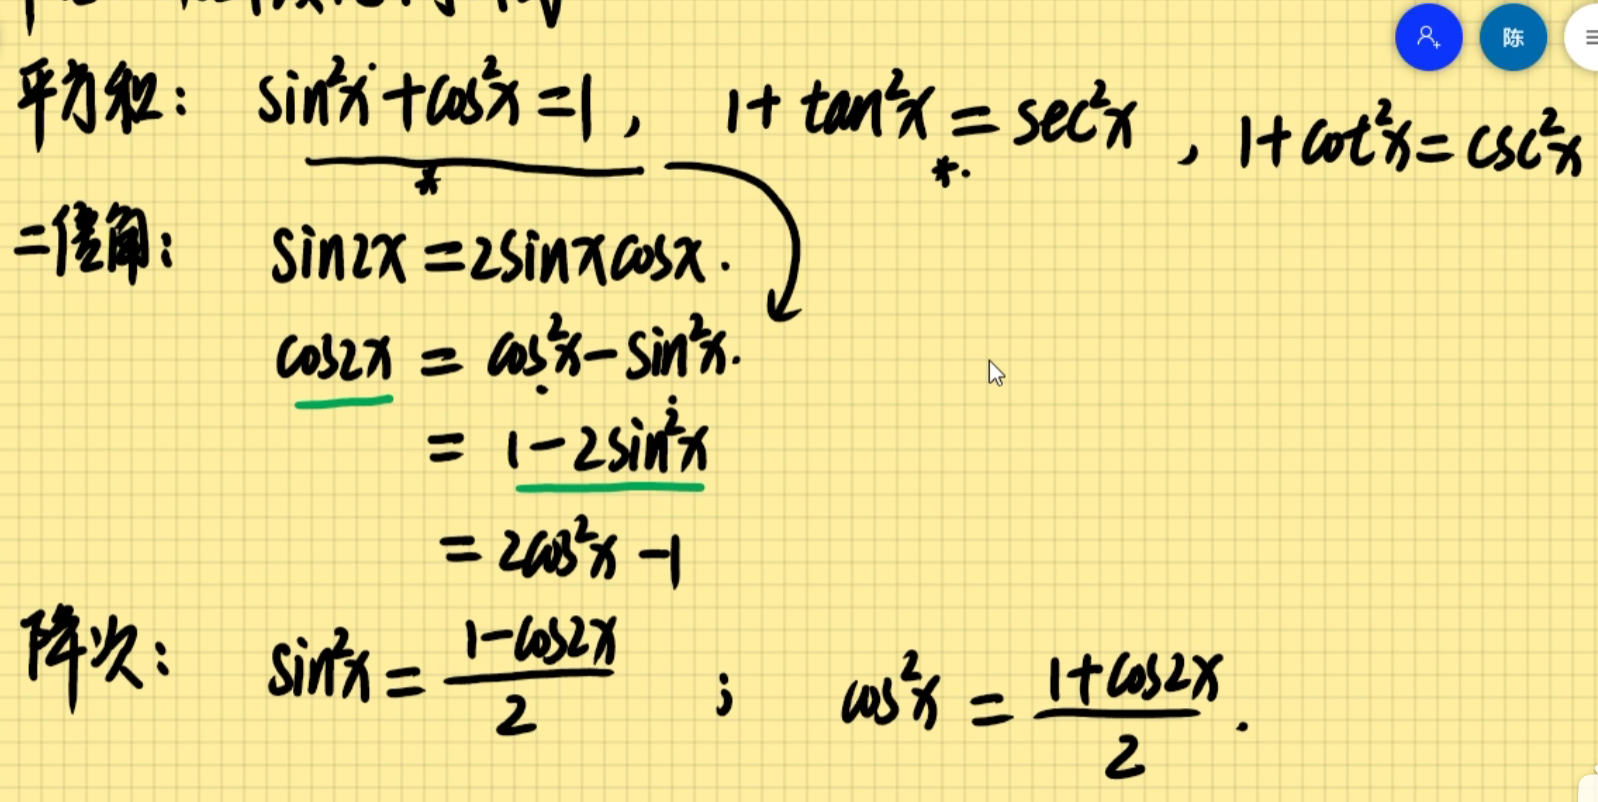 陈
平方和: sin²x + cos²x = 1, 1 + tan²x = sec²x, 1 + cot²x = csc²x
* *.
二倍角: sin2x = 2sinxcosx.
cos2x = cos²x - sin²x.
= 1 - 2sin²x
= 2cos²x - 1
降次: sin²x = (1-cos2x)/2 ; cos²x = (1+cos2x)/2.